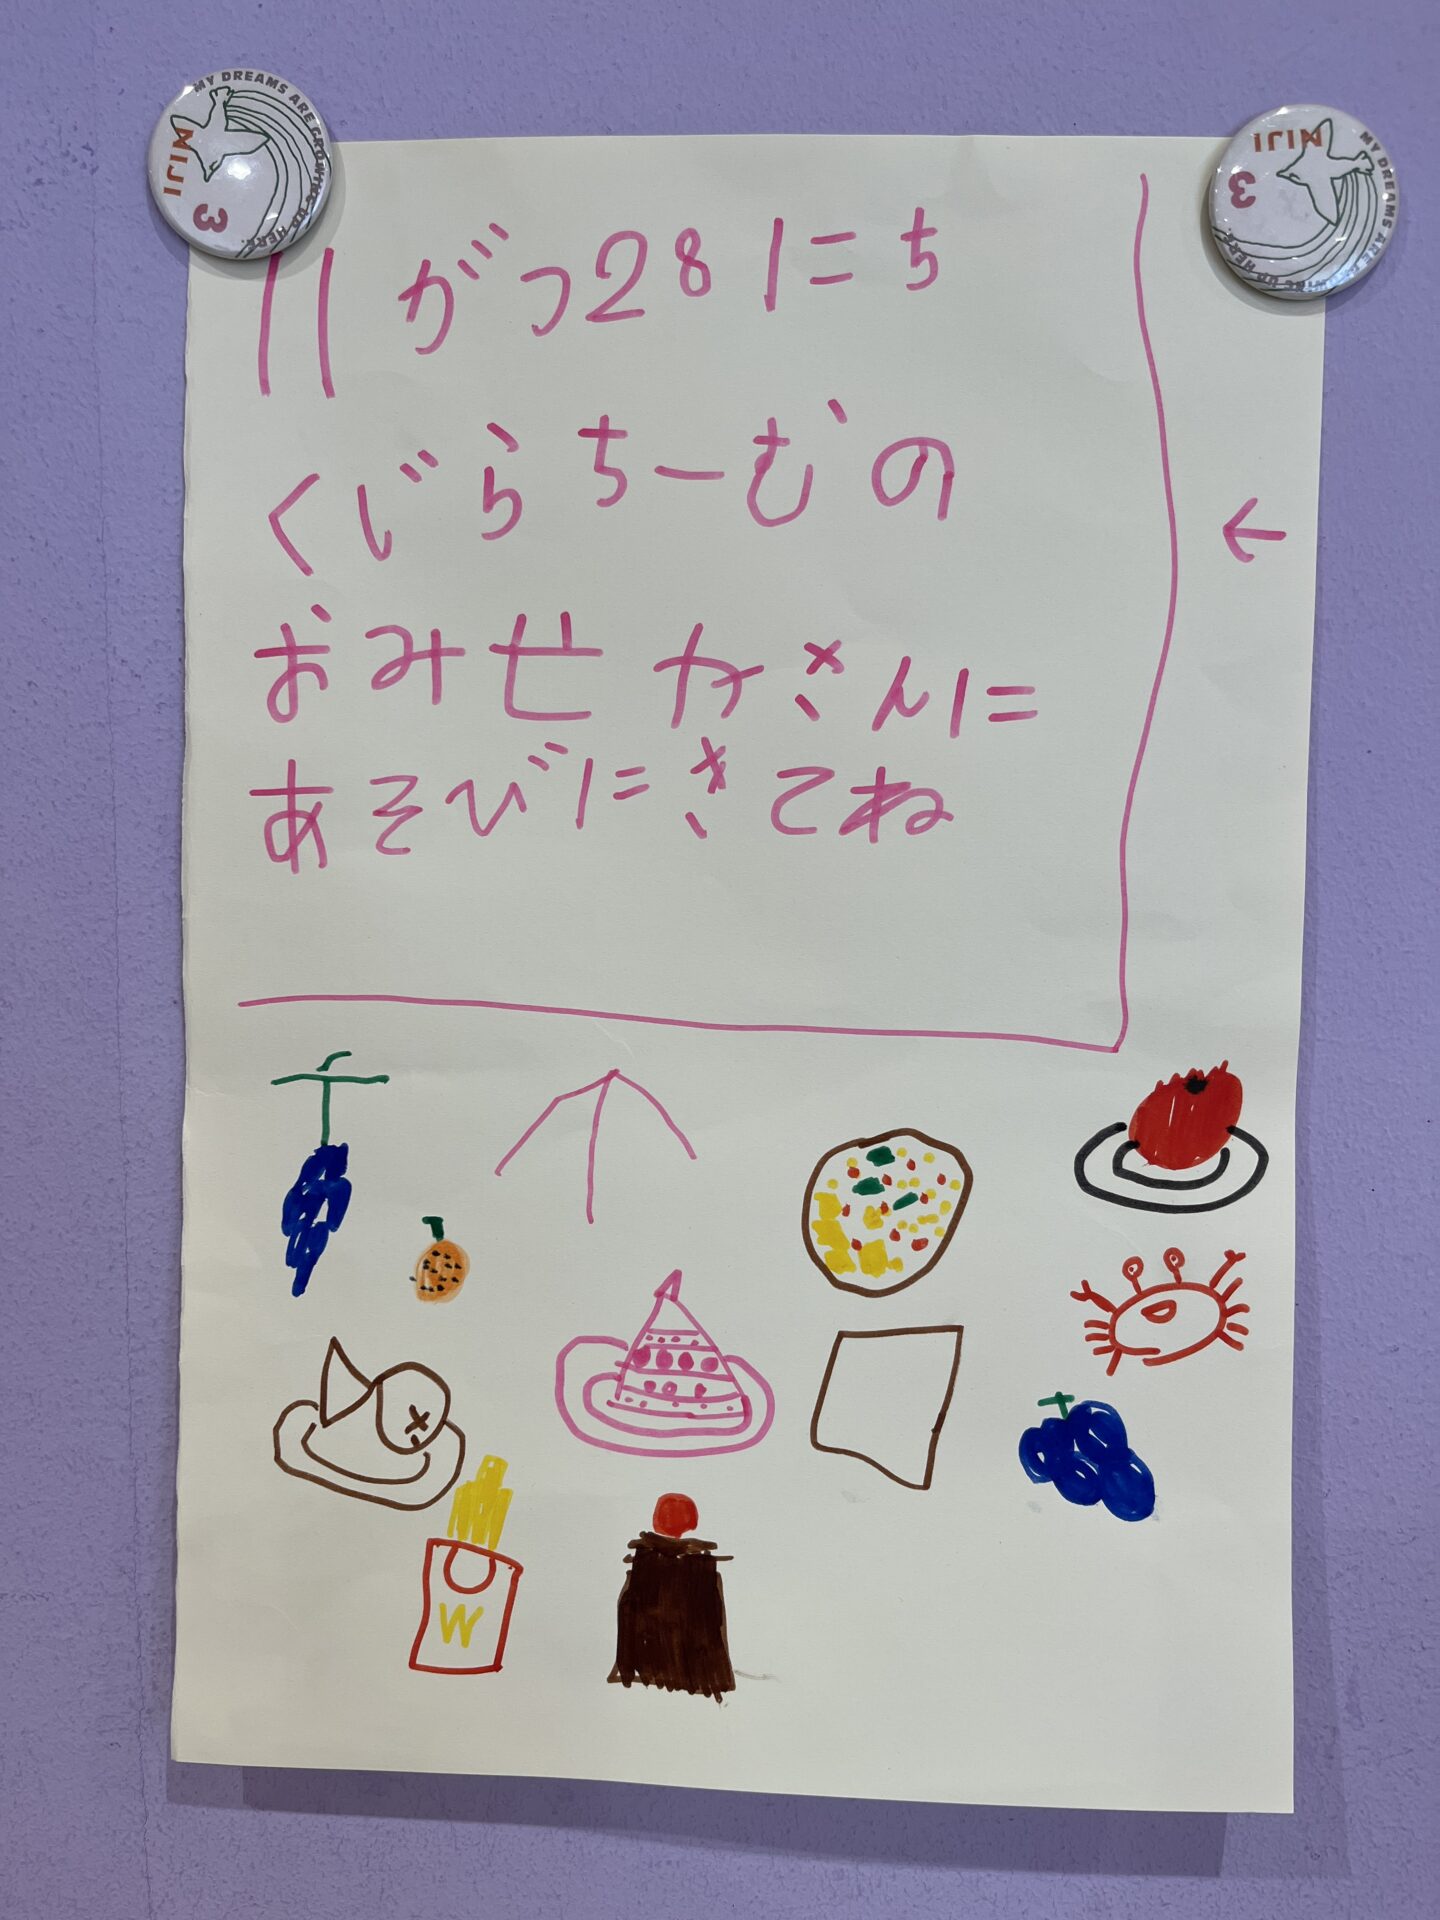 MY DREAMS ARE GROWING UP HERE.
NIJI
3
MY DREAMS ARE GROWING UP HERE.
NIJI
3
11がつ28にち
くじらちーむの
おみせやさんに
あそびにきてね
←
W